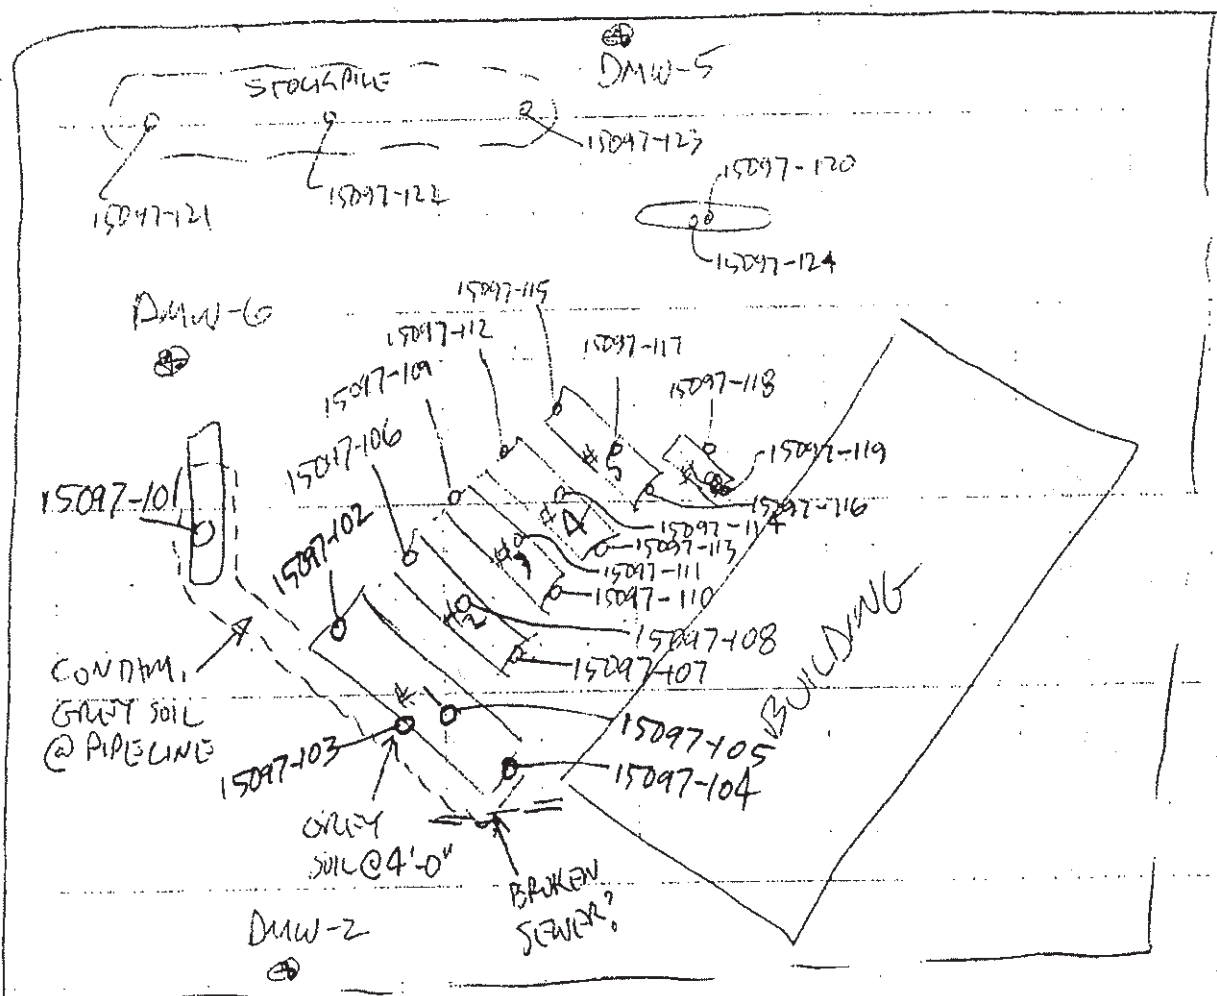 DMW-5
STOCKPILE
15097-123
15097-120
15097-121
15097-122
15097-124
DMW-6
15097-115
15097-112
15097-117
15097-109
15097-118
15097-106
#5
15097-119
15097-101
15097-116
#4
15097-114
15097-102
15097-113
#3
15097-111
15097-110
#2
15097-108
15097-107
BUILDING
CONTAM.
GREY SOIL
@ PIPELINE
#1
15097-105
15097-103
15097-104
GREY
SOIL @ 4'-0"
BROKEN
SEWER?
DMW-2